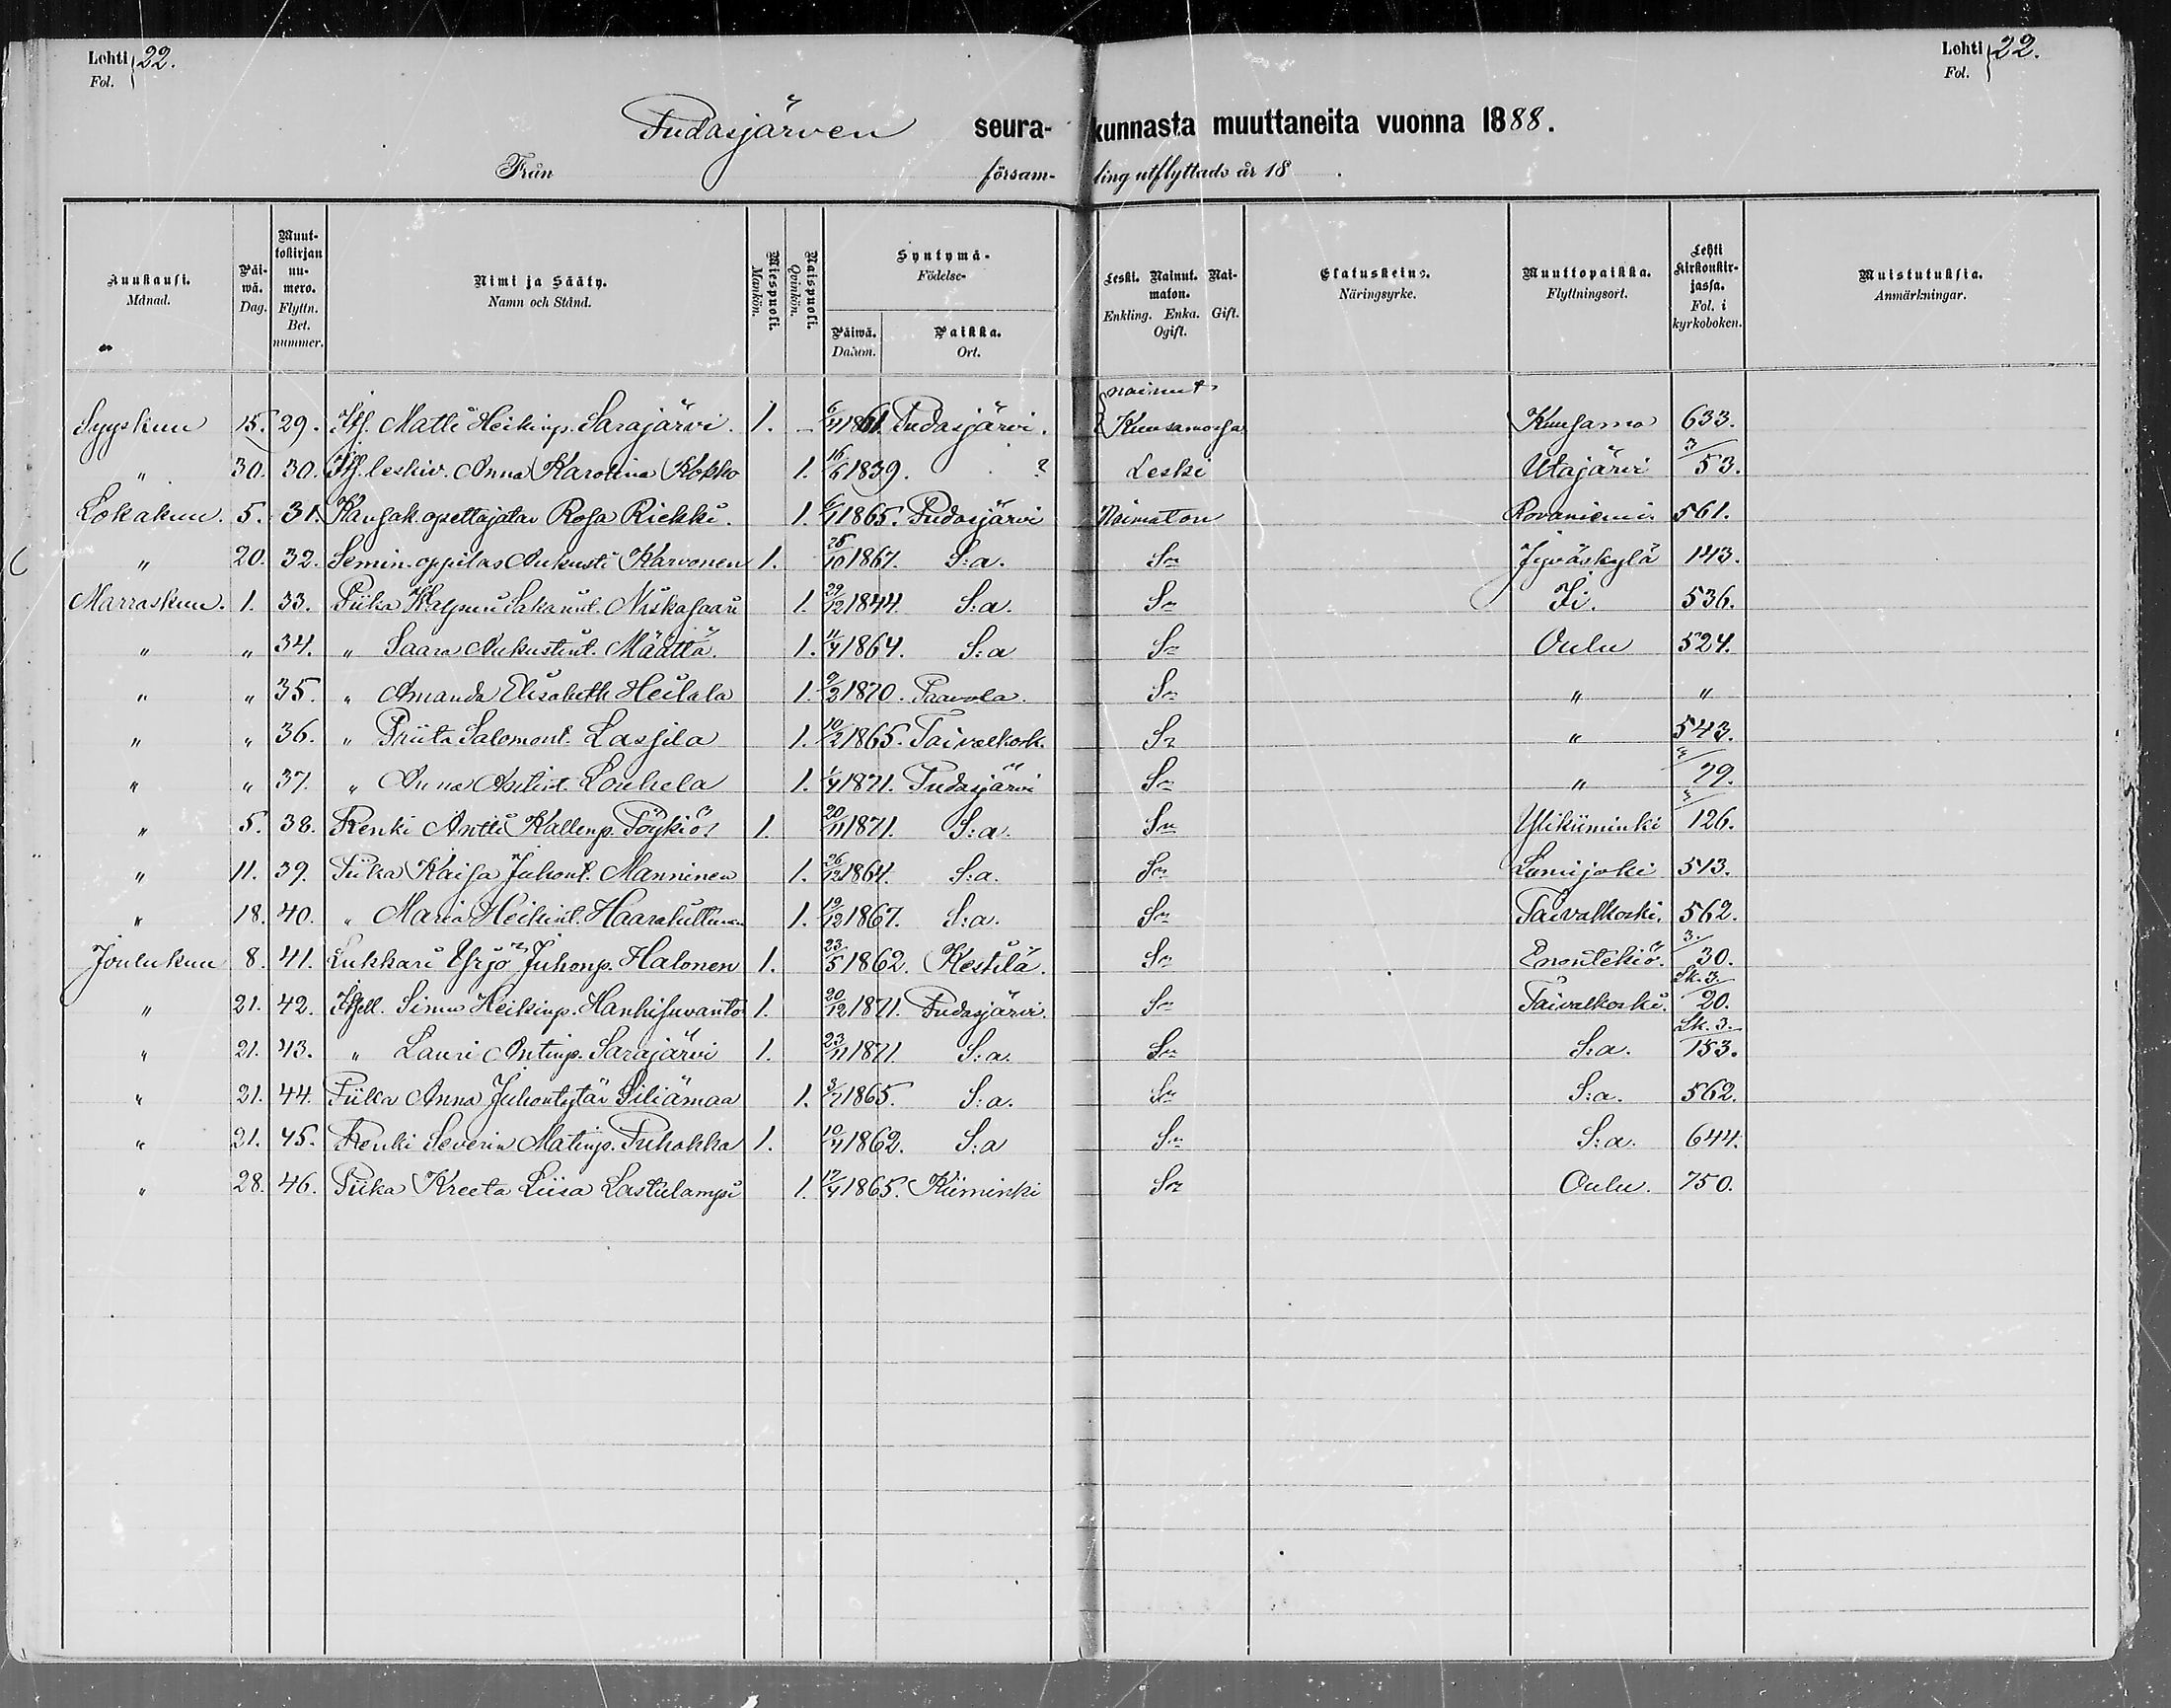 Lehti 22.
Fol.
Lehti 22.
Fol.
Pudasjärven seura- kunnasta muuttaneita vuonna 1888.
Från försam- ling utflyttade år 18 .
Kuukausi. Månad.
Päi-wä. Dag.
Muut-tokirjan nu-mero. Flyttn. Bet. nummer.
Nimi ja Sääty. Namn och Stånd.
Miespuoli. Mankön.
Naispuoli. Qvinkön.
Syntymä- Födelse-
Päiwä. Datum.
Paikka. Ort.
Leski. Nainut. Nai-maton. Enkling. Enka. Gift. Ogift.
Elatuskeino. Näringsyrke.
Muuttopaikka. Flyttningsort.
Lehti Kirkonkir-jassa. Fol. i kyrkoboken.
Muistutuksia. Anmärkningar.
nainut
Syyskuu 15. 29. Matti Heikinp. Sarajärvi. 1. - 1861. Pudasjärvi. Kuusamossa Kuusamo 633.
" 30. 30. leskiv. Anna Karolina Kokko 1. 16/6 1839. ? Leski Utajärvi 3/53.
Lokakuu. 5. 31. Kansak. opettajatar Rosa Riekki. 1. 1865. Pudasjärvi Naimaton Rovaniemi 561.
" 20. 32. Semin. oppilas Aukusti Karvonen 1. 28/10 1867. S:a. Sn Jyväskylä 143.
Marraskuu. 1. 33. Piika Niskasaari 1. 29/12 1844. S:a. Sn Ii. 536.
" " 34. " Saara Aukustint. Määttä. 1. 11/4 1864. S:a Sn Oulu 524.
" " 35. " Amanda Elisabeth Heilala 1. 9/2 1870. Paavola. Sn " "
" " 36. " Priita Salomont. Lasjila 1. 10/2 1865. Taivalkosk. Sn " 543.
" " 37. " Anna Antint. Louhela 1. 1/4 1871. Pudasjärvi Sn " 3/79.
" 5. 38. Renki Antti Kallenp. Pöykiö 1. 20/11 1871. S:a. Sn Ylikiiminki 3/126.
" 11. 39. Piika Kaisa Juhont. Manninen 1. 26/12 1864. S:a. Sn Lumijoki 513.
" 18. 40. " Maria Heikint. Haarahiltunen 1. 19/12 1867. S:a. Sn Taivalkoski. 562.
Joulukuu 8. 41. Lukkari Yrjö Juhonp. Halonen 1. 23/5 1862. Kestilä. Sn Enontekiö. 3./30.
" 21. 42. Itsell. Simo Heikinp. Hanhisuvanto 1. 20/12 1871. Pudasjärvi. Sn Taivalkoski. Lk. 3./20.
" 21. 43. " Lauri Antinp. Sarajärvi 1. 23/11 1871. S:a. Sn S:a. Lk. 3./153.
" 21. 44. Piika Anna Juhontytär Siliämaa 1. 3/7 1865. S:a. Sn S:a. 562.
" 21. 45. Renki Severin Matinp. Puhakka 1. 10/4 1862. S:a Sn S:a. 644.
" 28. 46. Piika Kreeta Liisa Lastulampi 1. 17/4 1865. Kiiminki Sn Oulu. 750.